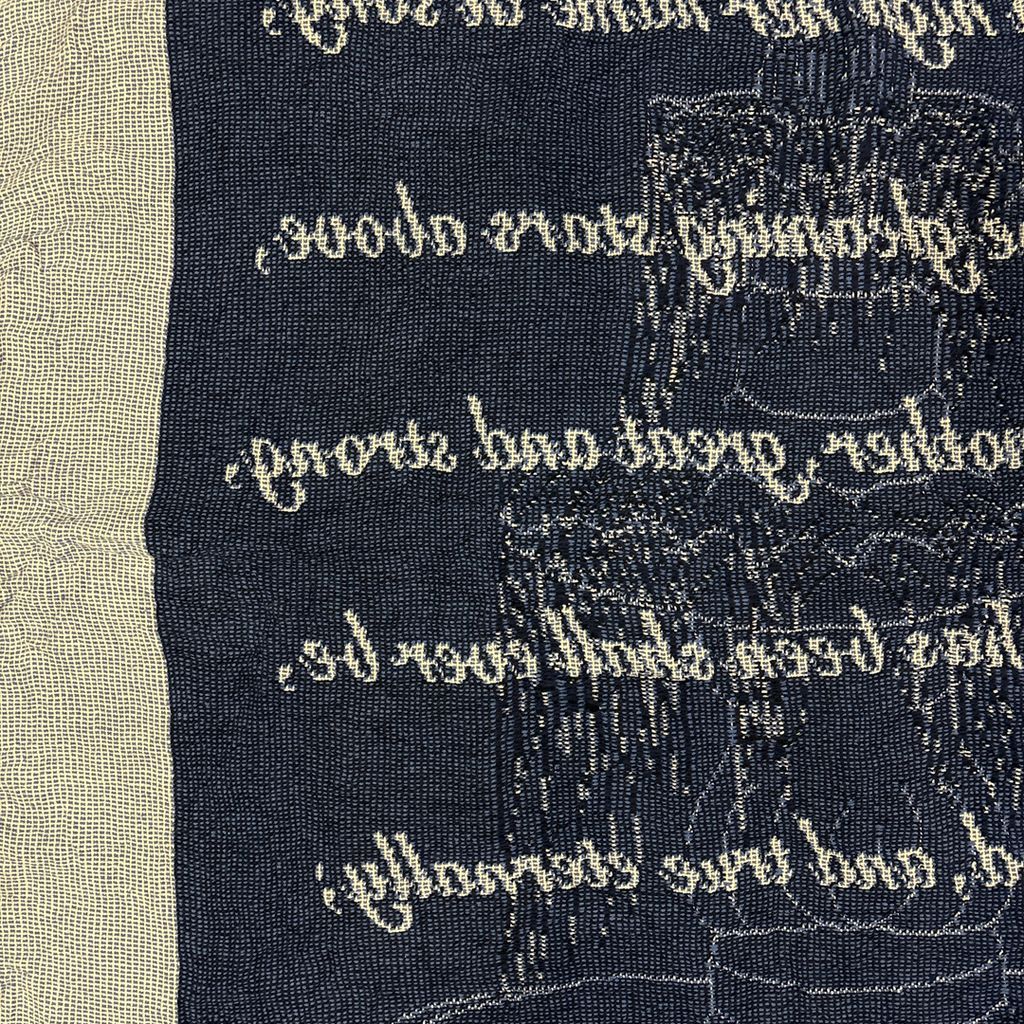 high her name in song,
gleaming stars above,
mother, great and strong.
has been shall ever be,
and true eternally;